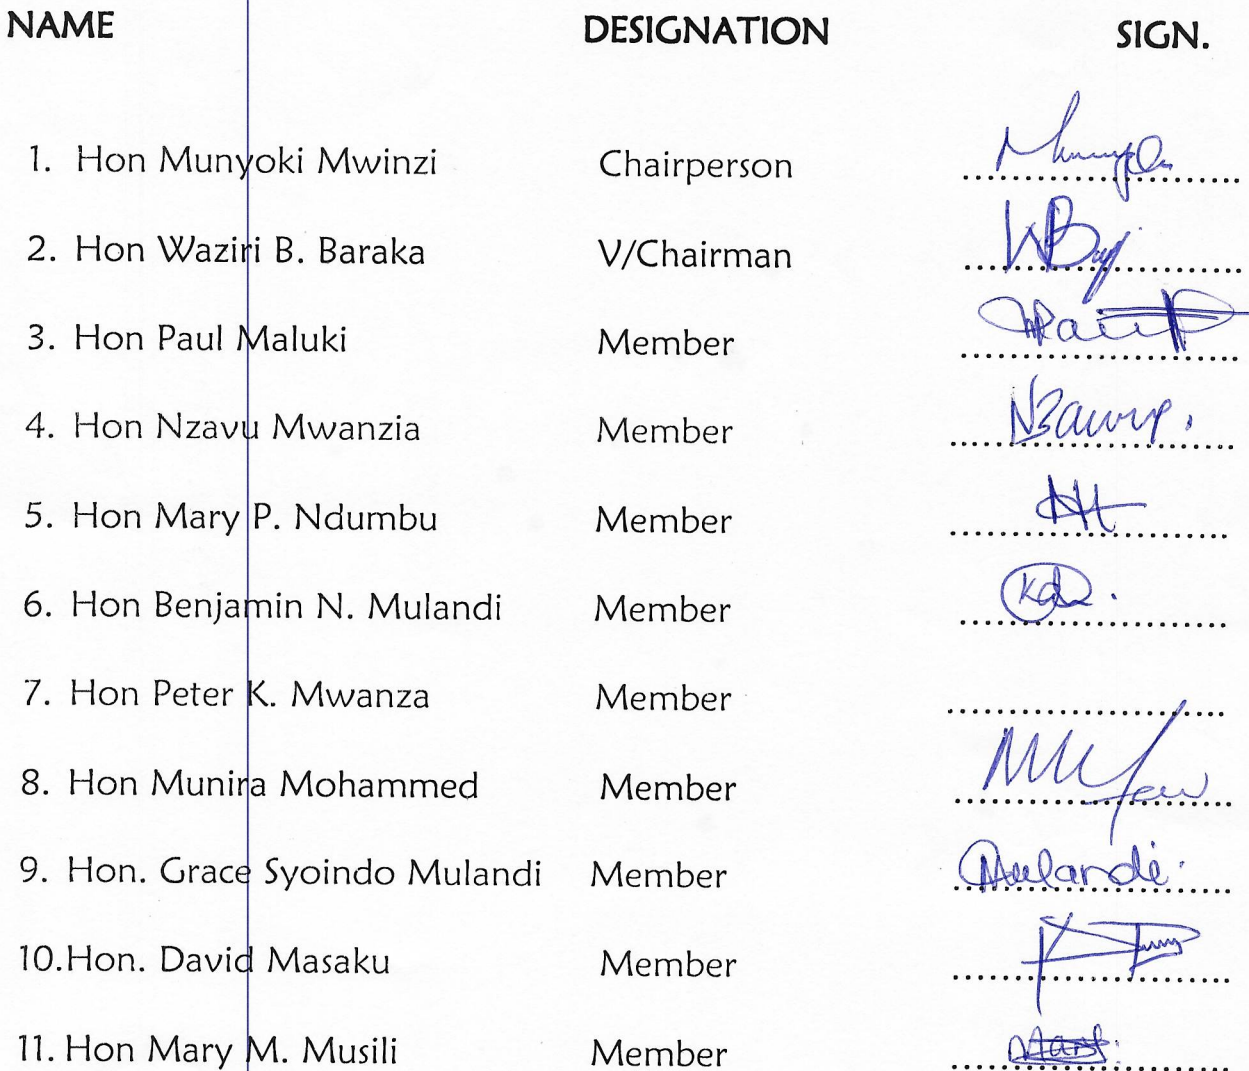 NAME DESIGNATION SIGN.
1. Hon Munyoki Mwinzi Chairperson
2. Hon Waziri B. Baraka V/Chairman
3. Hon Paul Maluki Member
4. Hon Nzavu Mwanzia Member
5. Hon Mary P. Ndumbu Member
6. Hon Benjamin N. Mulandi Member
7. Hon Peter K. Mwanza Member
8. Hon Munira Mohammed Member
9. Hon. Grace Syoindo Mulandi Member Mulandi
10. Hon. David Masaku Member
11. Hon Mary M. Musili Member